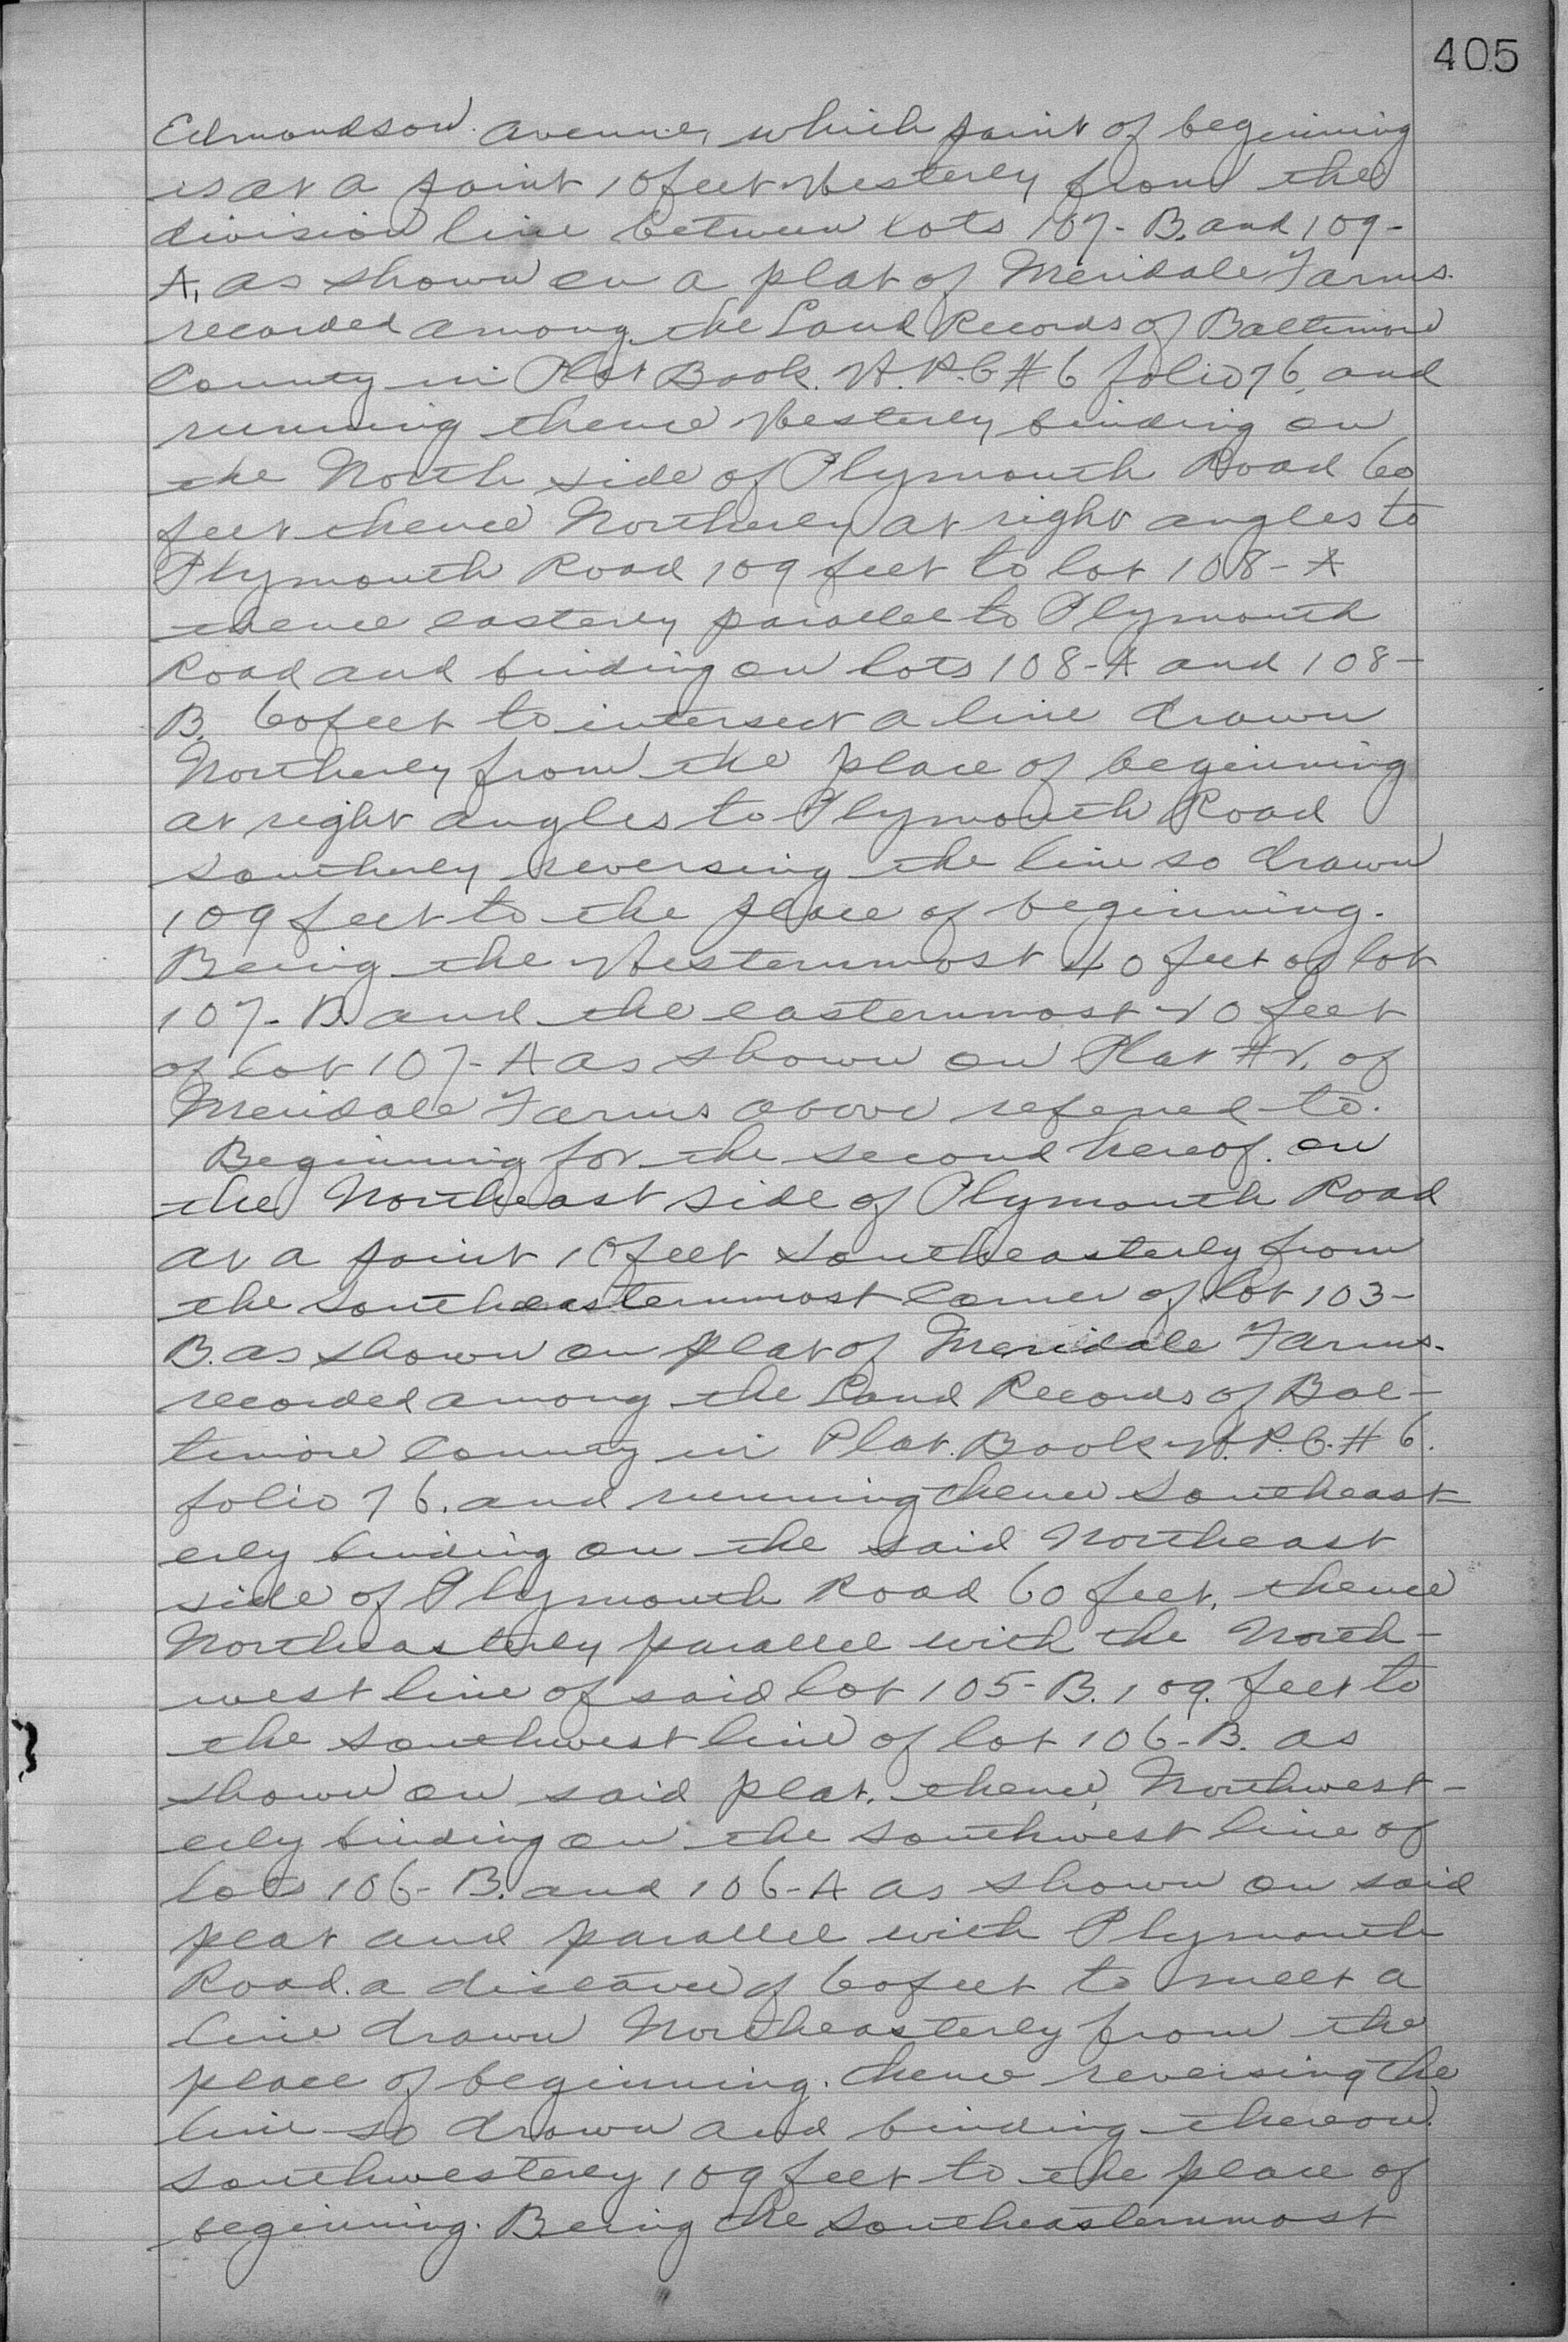 405
Edmondson avenue, which point of beginning
is at a point 10 feet Westerly from the
division line between lots 107-B. and 109-
A, as shown on a plat of Meridale Farms.
recorded among the Land Records of Baltimore
County in Plat Book W.P.C #6 folio 76, and
running thence Westerly binding on
the North side of Plymouth Road 60
feet thence Northerly at right angles to
Plymouth Road 109 feet to lot 108-A
thence easterly parallel to Plymouth
Road and binding on lots 108-A and 108-
B. 60 feet to intersect a line drawn
Northerly from the place of beginning
at right angles to Plymouth Road
southerly reversing the line so drawn
109 feet to the place of beginning.
Being the Westernmost 40 feet of lot
107-B and the easternmost 20 feet
of lot 107-A as shown on Plat #2. of
Meridale Farms above referred to.
Beginning for the second hereof. on
the Northeast side of Plymouth Road
at a point 10 feet Southeasterly from
the Southeasternmost Corner of lot 103-
B. as shown on plat of Meridale Farms.
recorded among the Land Records of Bal-
timore County in Plat. Book W.P.C. #6.
folio 76. and running thence Southeast-
erly binding on the said Northeast
side of Plymouth Road 60 feet, thence
Northeasterly parallel with the North-
west line of said lot 105-B. 109. feet to
the Southwest line of lot 106-B. as
shown on said plat. thence Northwest-
erly binding on the Southwest line of
lots 106-B. and 106-A as shown on said
plat and parallel with Plymouth
Road. a distance of 60 feet to meet a
line drawn Northeasterly from the
place of beginning. thence reversing the
line so drawn and binding thereon
Southwesterly 109 feet to the place of
beginning. Being the Southeasternmost